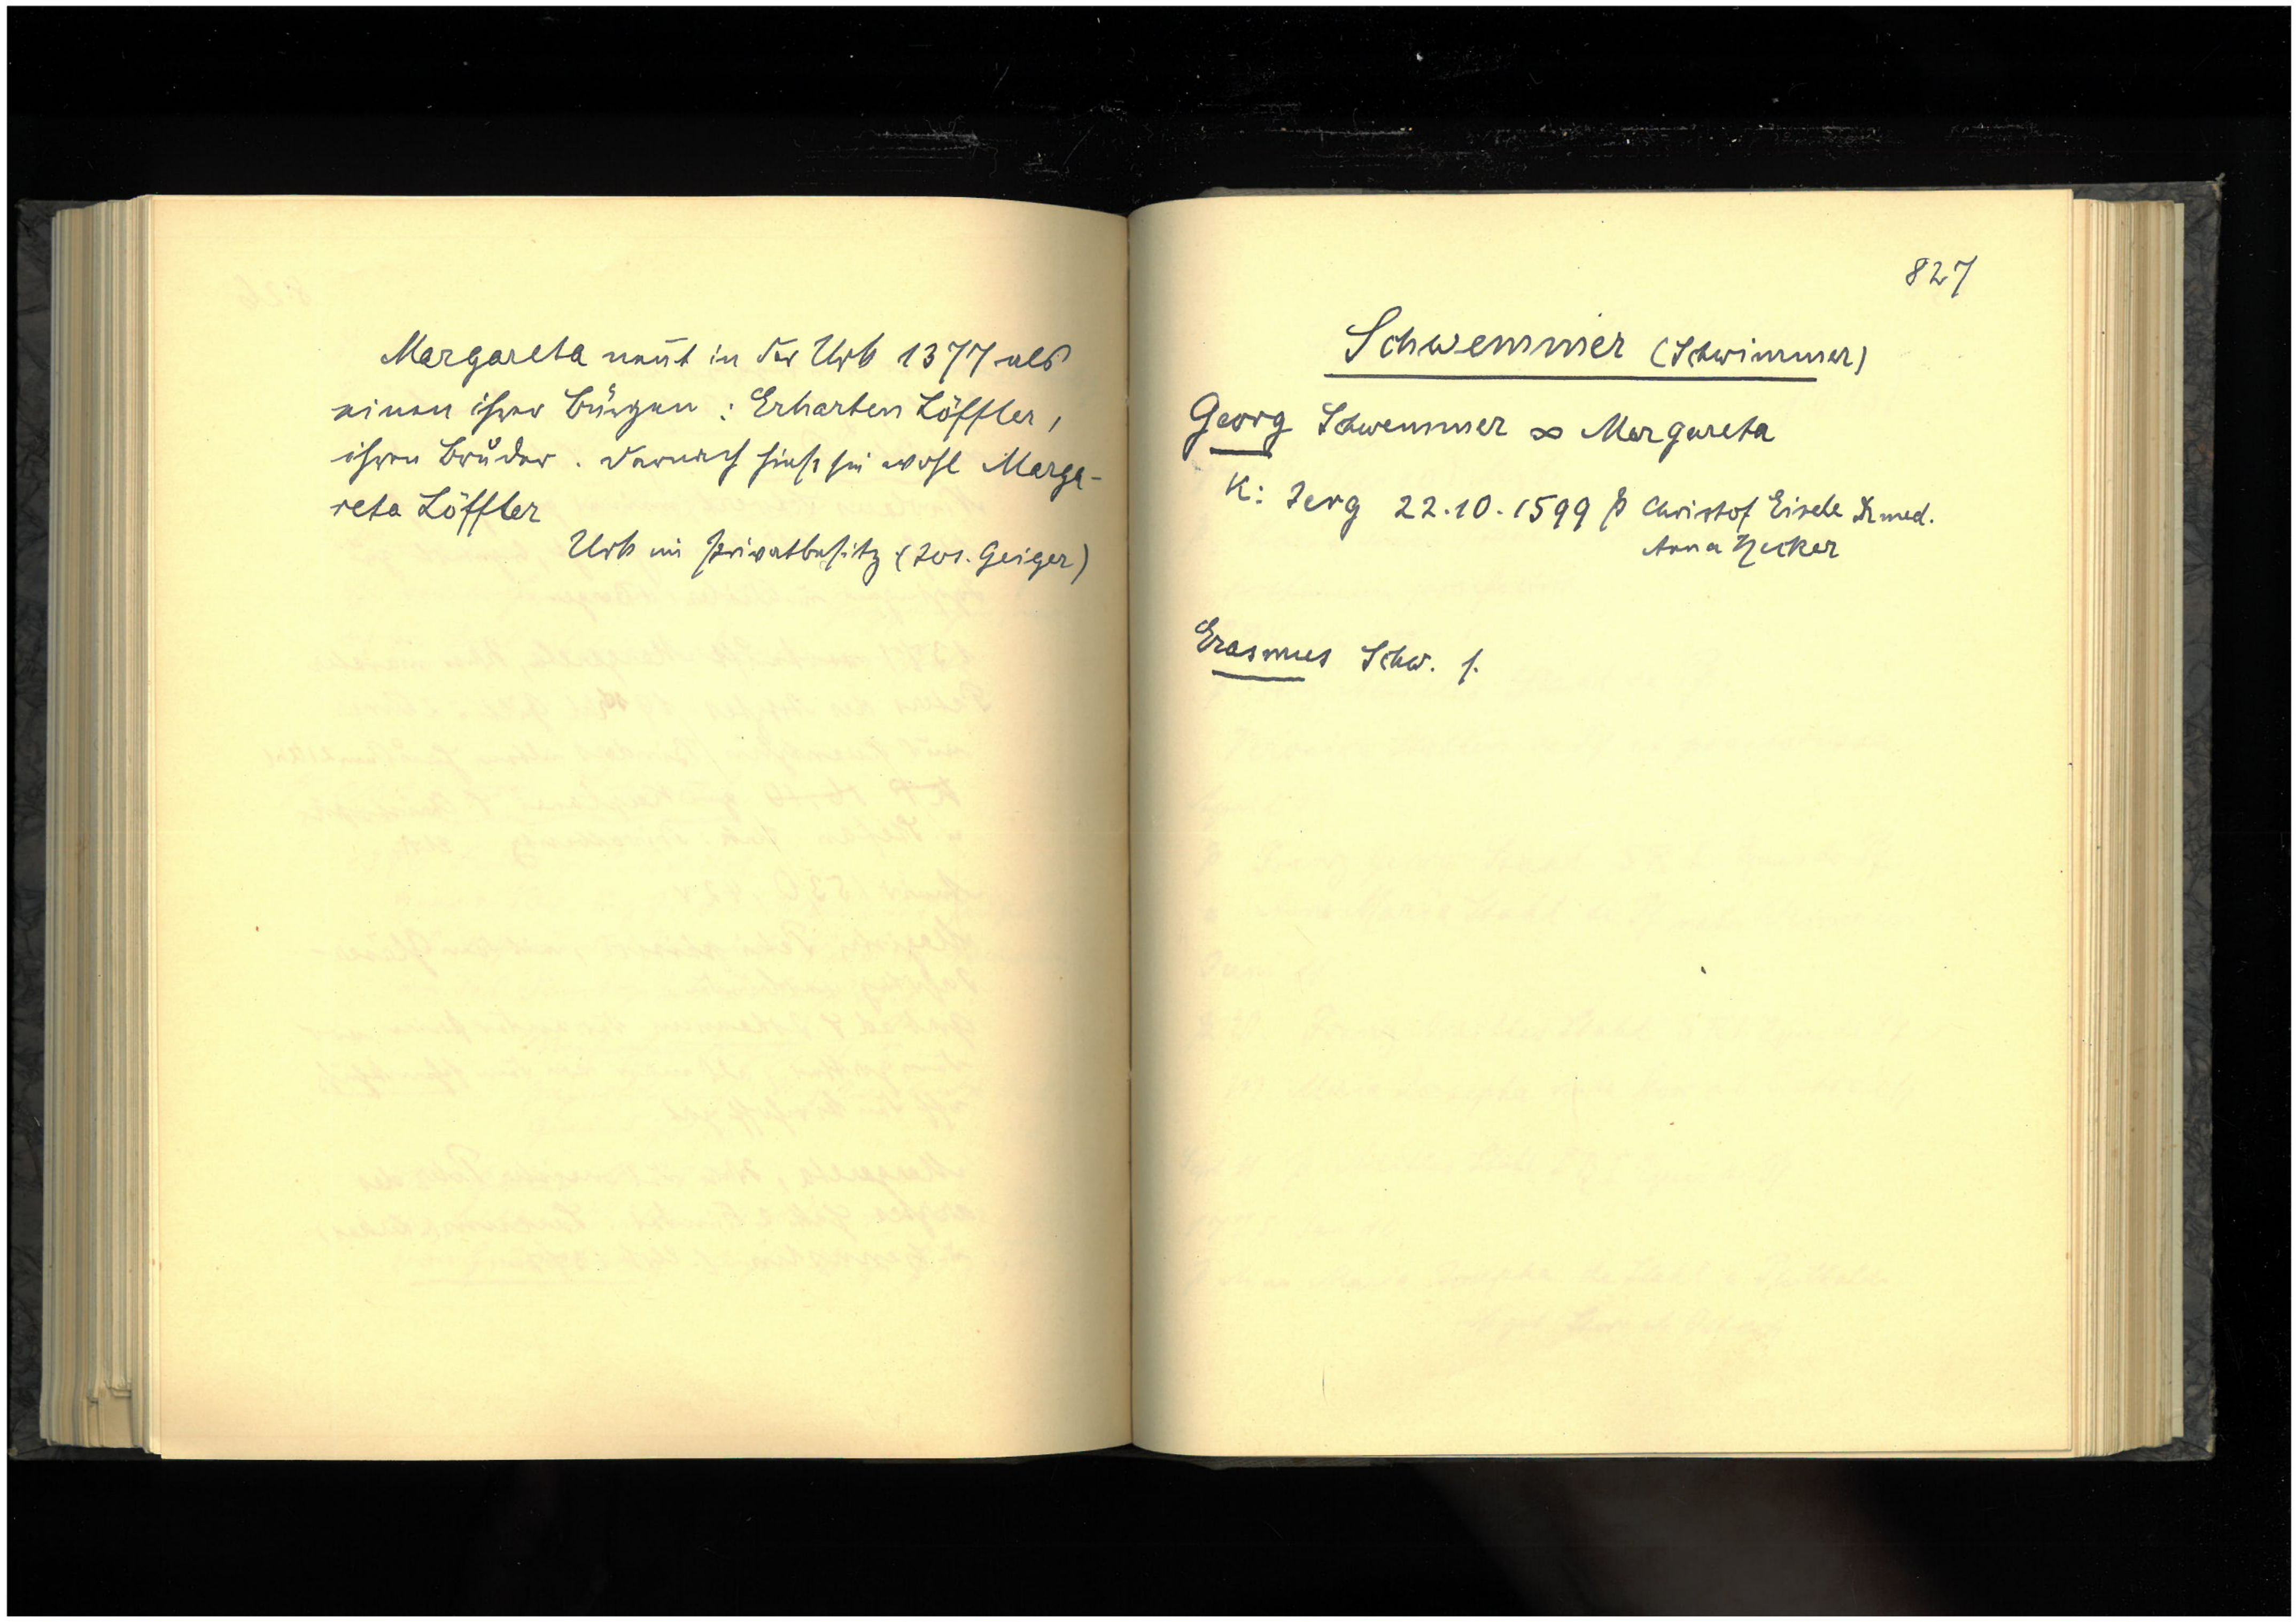 Margareta nennt in der Urk 1377 als
einen ihrer Bürgen : Erharten Löffler,
ihren Bruder. Darnach hiess sie wohl Marga-
reta Löffler
Urk im Privatbesitz (Jos. Geiger)
827
Schwemmer (Schwimmer)
Georg Schwemmer ∞ Margareta
K: Jerg 22.10.1599 P Christof Eisele Dr med.
Anna
Erasmus Schw. f.